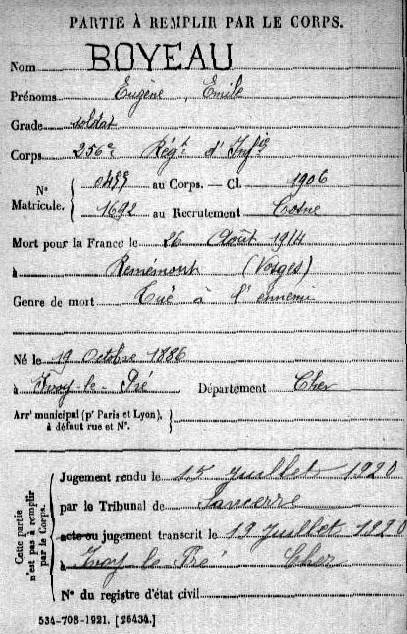 PARTIE À REMPLIR PAR LE CORPS.
Nom BOYEAU
Prénoms Eugène, Emile
Grade soldat
Corps 256e Régt d'Infie
N° Matricule. 0499 au Corps. — Cl. 1906
1692 au Recrutement Cosne
Mort pour la France le 26 Août 1914
à Remémont (Vosges)
Genre de mort Tué à l'ennemi
Né le 19 Octobre 1886
à Ivoy-le-Pré Département Cher
Arrt municipal (pr Paris et Lyon), à défaut rue et N°.
Cette partie n'est pas à remplir par le Corps.
Jugement rendu le 15 Juillet 1920
par le Tribunal de Sancerre
acte ou jugement transcrit le 19 Juillet 1920
à Ivoy le Pré Cher
N° du registre d'état civil
534-708-1921. [26434.]